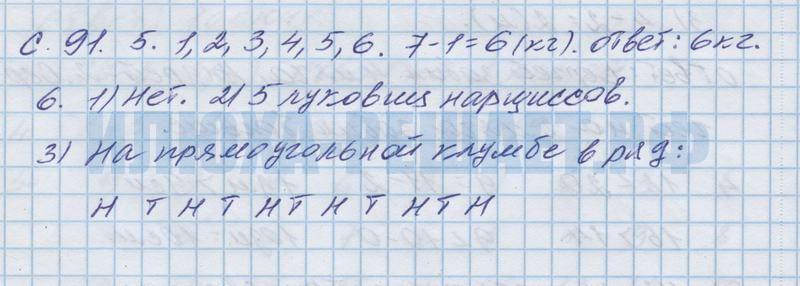 с. 91. 5. 1, 2, 3, 4, 5, 6. 7-1=6(кг). Ответ: 6кг.
6. 1) Нет. 2) 5 луковиц нарциссов.
3) На прямоугольной клумбе в ряд:
Н Т Н Т Н Т Н Т Н Т Н